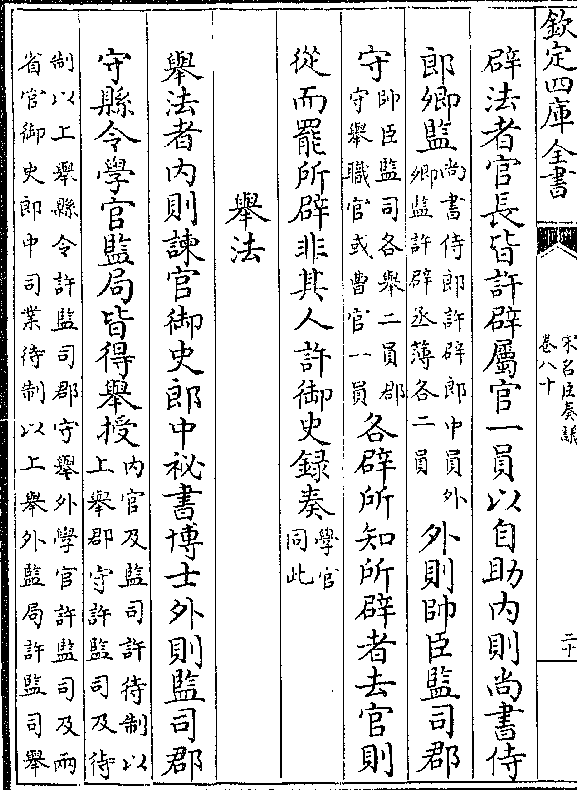 欽定四庫全書
宋名臣奏議
卷八十
二十
辟法者官長皆許辟屬官一員以自助内則尚書侍
郎卿監尚書侍郎許辟郎中員外
卿監許辟丞薄各二員外則帥臣監司郡
守帥臣監司各舉二員郡
守舉職官或曹官一員各辟所知所辟者去官則
從而罷所辟非其人許御史録奏學官
同此
舉法
舉法者内則諫官御史郎中祕書博士外則監司郡
守縣令學官監局皆得舉授内官及監司許待制以
上舉郡守許監司及待
制以上舉縣令許監司郡守舉外學官許監司及兩
省官御史郎中司業待制以上舉外監局許監司舉